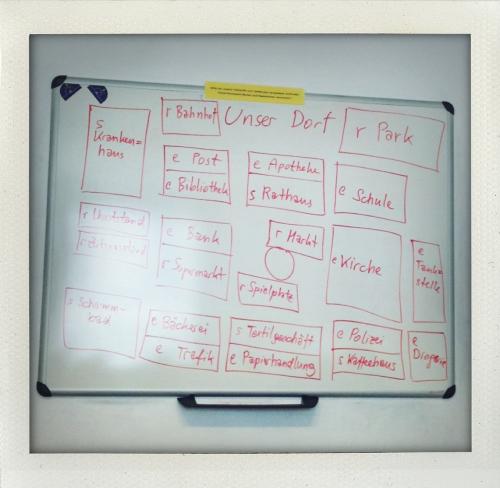 r Bahnhof
Unser Dorf
r Park
s
Kranken=
haus
e Post
e Bibliothek
e Apotheke
s Rathaus
e Schule
r Obststand
e Bank
r Supermarkt
r Markt
r Spielplatz
e Kirche
e
Tank
stelle
s Schwimm-
bad
e Bäckerei
e Trafik
s Textilgeschäft
e Papierhandlung
e Polizei
s Kaffeehaus
e
Drogerie